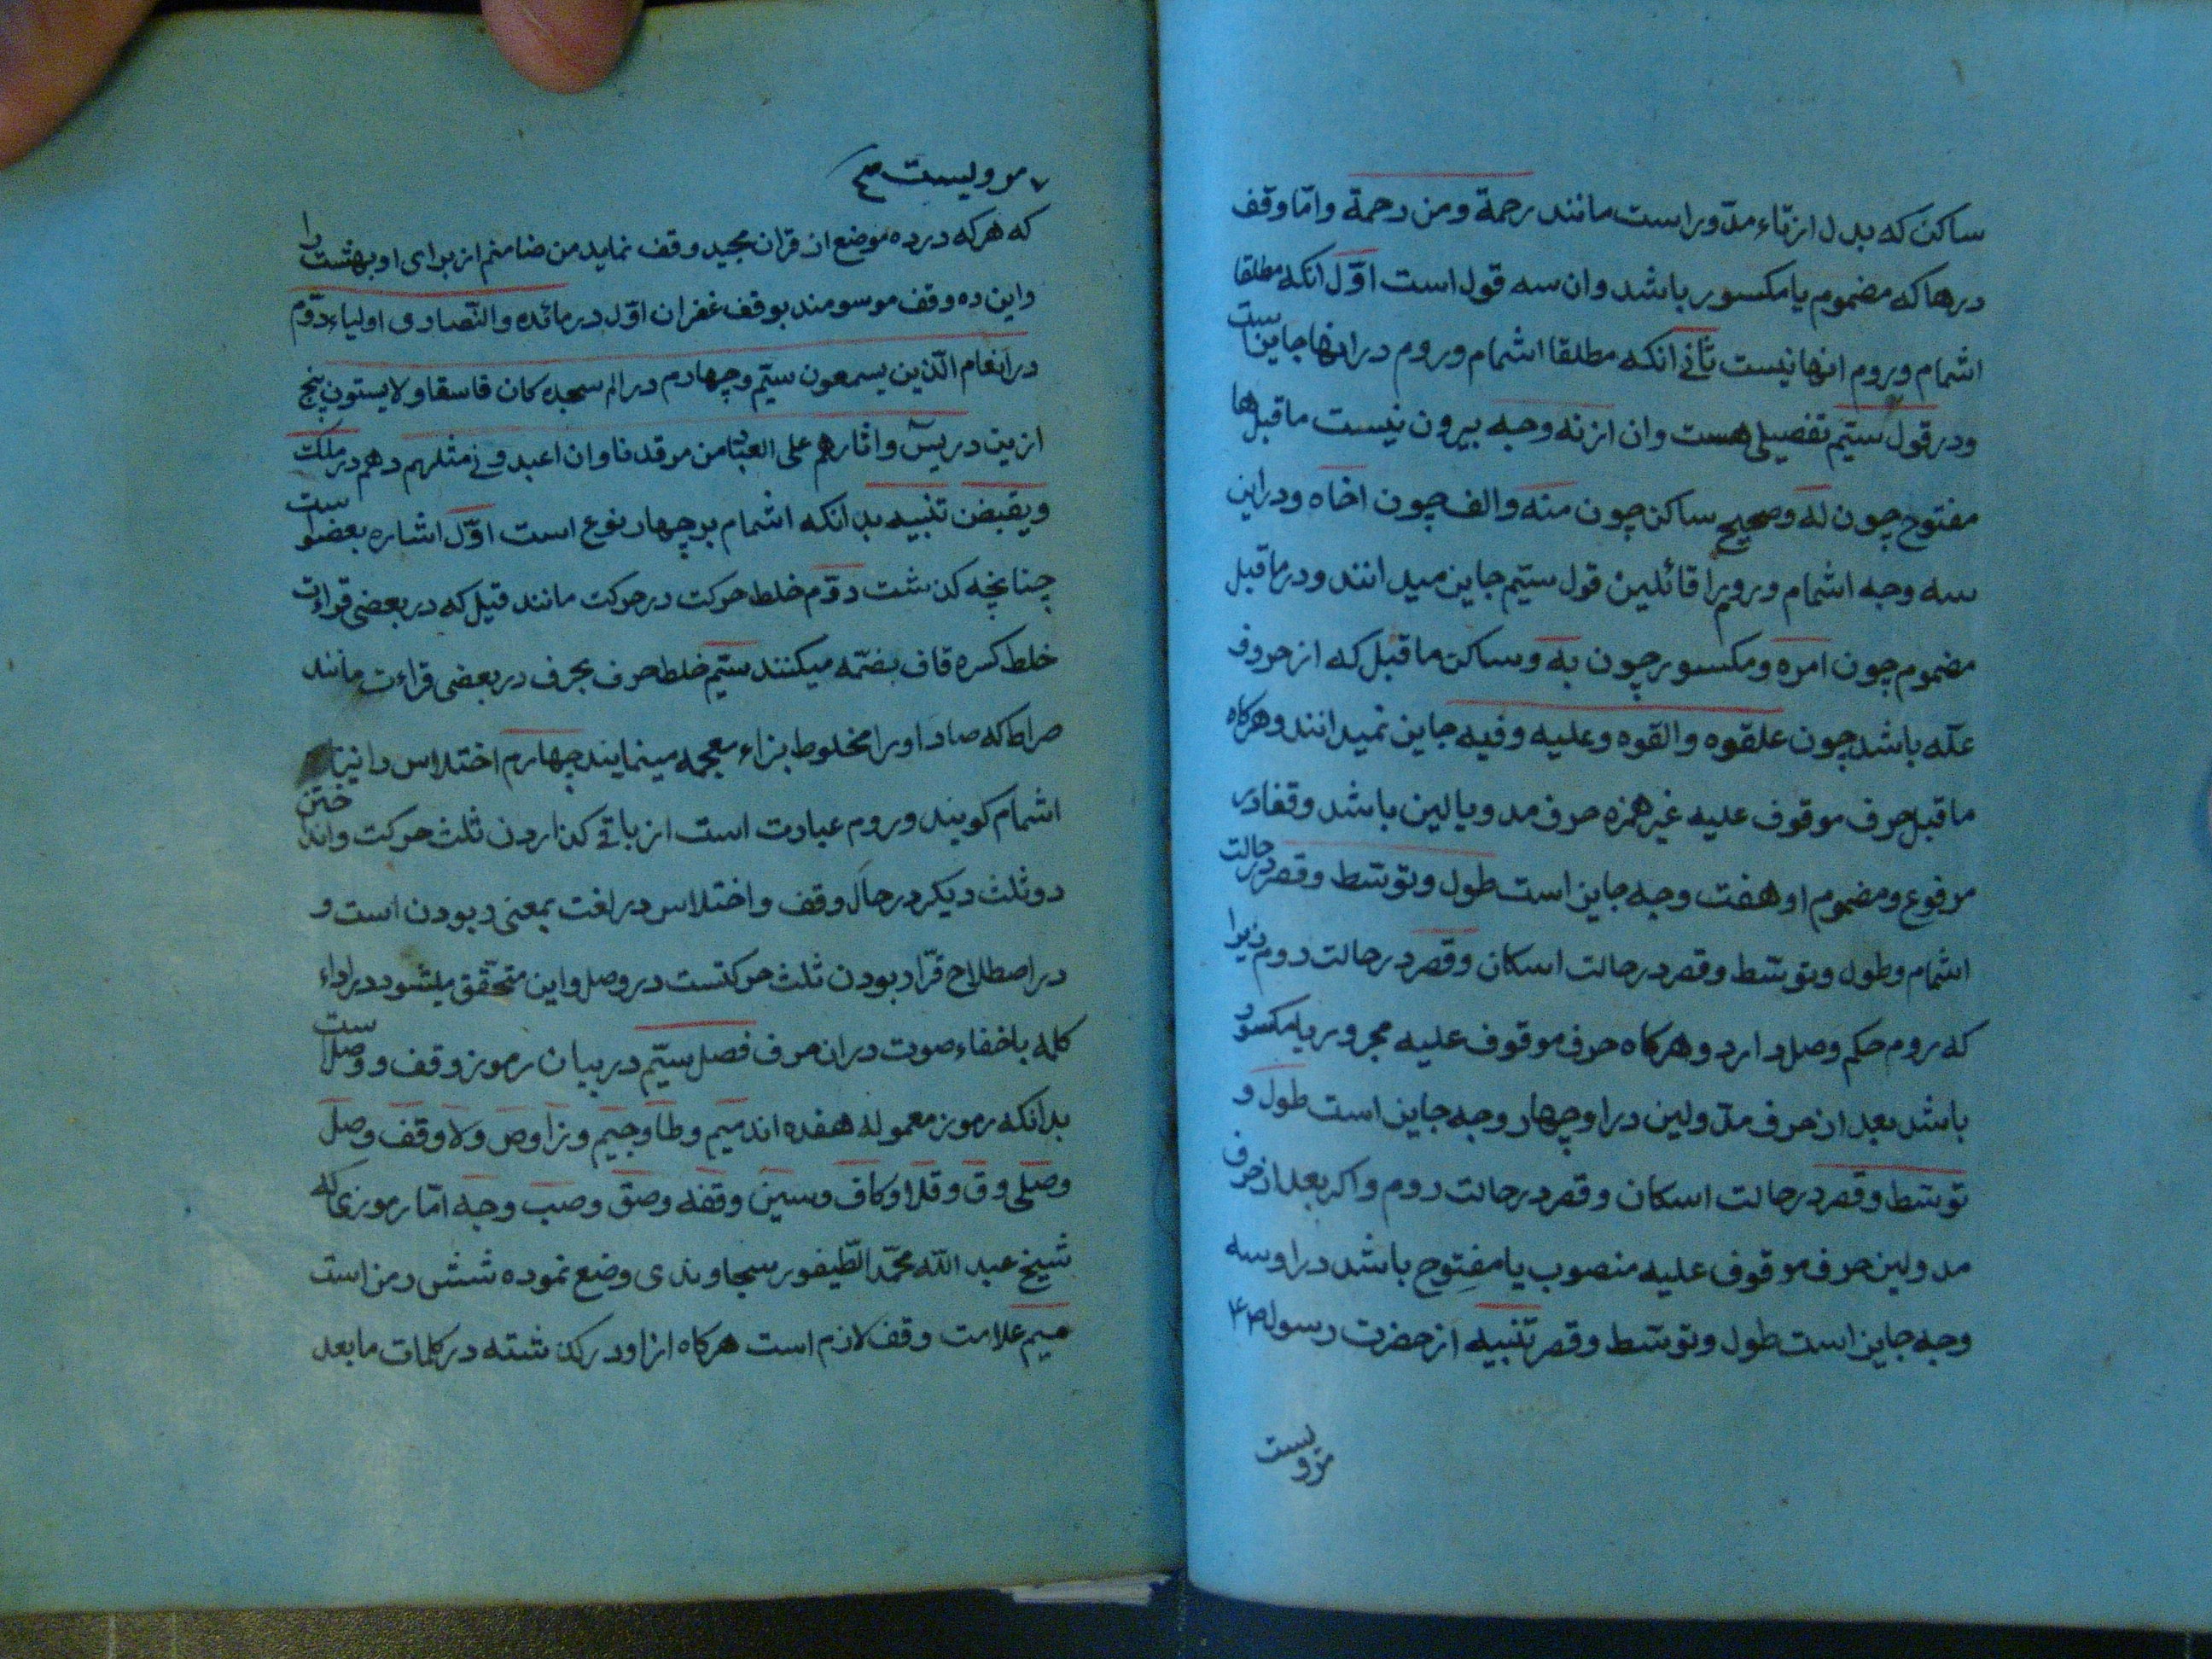 ساکن که بدل از تاء مدّور است مانند رحمة ومن رحمة وامّا وقف
درها که مضموم یا مکسور باشد وان سه قول است اوّل انکه مطلقا
اشمام وروم انها نیست ثانی انکه مطلقا اشمام وروم در انها جایزست
ودر قول ستیم تفصیلی هست وان از نه وجه بیرون نیست ماقبل ها
مفتوح چون له وصحیح ساکن چون منه والف چون اخاه ودر این
سه وجه اشمام وروم را قائلین قول ستیم جایز میدانند ودر ماقبل
مضموم چون امره ومکسور چون به وساکن ماقبل که از حروف
علّه باشد چون علقوه والقوه وعلیه وفیه جایز نمیدانند وهرکاه
ماقبل حرف موقوف علیه غیر همزه حرف مد ویا لین باشد وقفا در
مرفوع ومضموم او هفت وجه جایز است طول وتوسّط وقصر در حالت
اشمام وطول وتوسّط وقصر در حالت اسکان وقصر در حالت دوم زیرا
که روم حکم وصل دارد وهرکاه حرف موقوف علیه مجرور یا مکسور
باشد بعد از حرف مدّ ولین در او چهار وجه جایز است طول و
توسّط وقصر در حالت اسکان وقصر در حالت دوم واکر بعد از حرف
مد ولین حرف موقوف علیه منصوب یا مفتوح باشد در او سه
وجه جایز است طول وتوسّط وقصر تنبیه از حضرت رسول ص
مرویست
مرویست
که هرکه در ده موضع از قران مجید وقف نماید من ضامنم از برای او بهشت را
واین ده وقف موسومند بوقف غفران اوّل در مائده والنّصاری اولیاء دوّم
در انعام الّذین یسمعون ستیم وچهارم در الم سجده کان فاسقا ولا یستون پنج
ازین در یسۤ واثارهم علی العباد من مرقدنا وان اعبدونی مثلهم دهم در ملکت
ویقبضن تنبیه بدانکه اشمام بر چهار نوع است اوّل اشاره بعضوست
چنانچه کذشت دوّم خلط حرکت در حرکت مانند قیل که در بعضی قراءت
خلط کسره قاف بضمّه میکنند ستیم خلط حرف بحرف در بعضی قراءت مانند
صراط که صاد او را مخلوط بزاء معجمه مینمایند چهارم اختلاس را نیز
اشمام کویند وروم عبارت است از باقی کذاردن ثلث حرکت وانداختن
دو ثلث دیکر در حال وقف واختلاس در لغت بمعنی ربودن است و
در اصطلاح قرّاء ربودن ثلث حرکتست در وصل واین متحقّق میشود در اداء
کلمه باخفاء صوت در ان حرف فصل ستیم در بیان رموز وقف ووصلست
بدانکه رموز معموله هفده اند میم وطا وجیم وزا وص ولا وقف وصل
وصلی وق وقلا وکاف وسین وقفه وصق وصب وجه امّا رموزی که
شیخ عبد اللّه محمّد الطّیفور سجاوندی وضع نموده شش رمز است
میم علامت وقف لازم است هرکاه از او درکذشته در کلمات مابعد